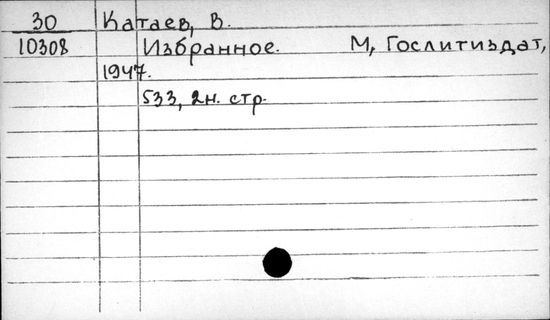 30 Катаев, В.
10308 Избранное. М, Гослитиздат,
1947.
533, 2н. стр.